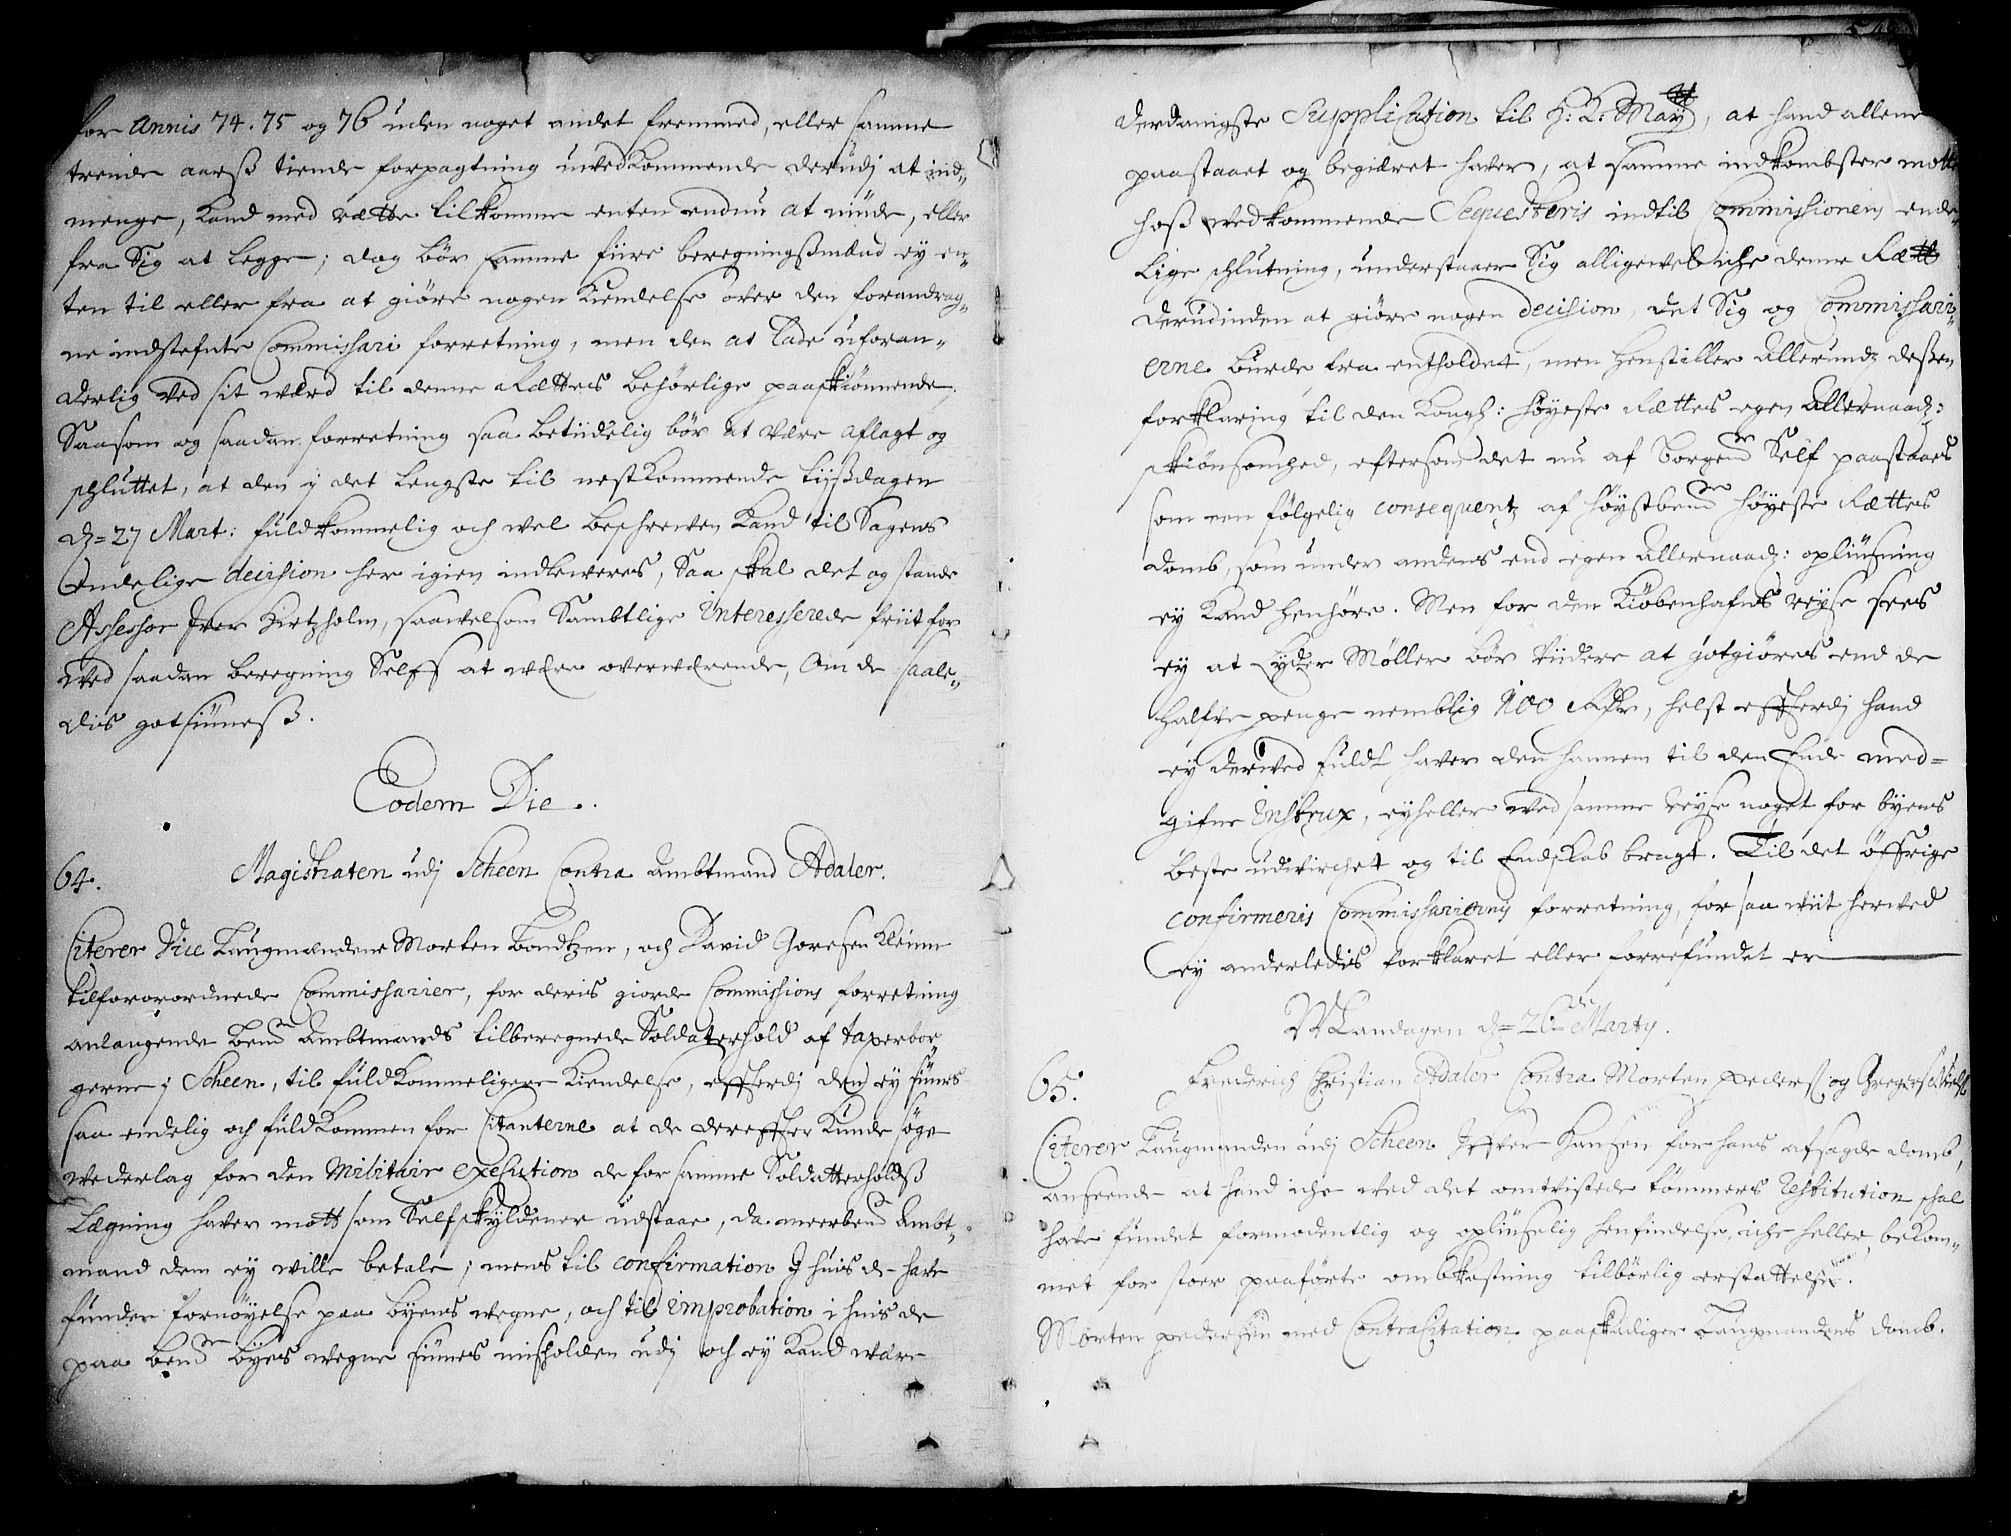 for Annis 74. 75 og 76 uden noget andet fremmed, eller samme
trende aarß tiende forpagtning uvedkommende derudj at ind„
menge, kand med rætte tilkomme enten endnu at niude, eller
fra Sig at legge; dog bör samme fiire beregningßmænd ey en„
ten til eller fra at giöre nogen Kiendelse over den forandrag„
ne indstefnte Commissari forretning, men den at lade uforan„
derlig ved sit værd til denne Rættes behörlige paaskiönnende,
Saasom og saadan forretning saa betiidelig bör at være aflagt og
schluttet, at den j det lengste til nestkommende tijßdagen
d= 27 Mart: fuldkommelig och vel beschreven kand til Sagens
Endelige decision her igien indleveres, Saa skal det og stande
Assessor Iver Hirtzholm, saavelsom Sambtlige Interesserede friit for
ved saadan beregning Selff at være overværende, om de saale„
dis got siuneß.
Eodem Die.
64. Magistraten udj Scheen Contra Ambtmand Adaler.
Citerer Vice Laugmændene Morten Bondtzen, och David Goresen Kleine
tilforordnede Commissarier, for deris giorde Commissions forretning
anlangende bemte Ambtmands tilberegnede Soldaterhold af taxerbor
gerne j Scheen, til fuldkommeligere Kiendelse, efftterdj den ey siunes
saa endelig och fuldkommen for Citanterne at de dereffter kunde söge
vederlag for den Militair execution de for samme Soldatterholdß
Lægning haver mott som Selfskyldener udstaae, da meerbemte Ambt„
mand dem ey ville betale; mens til confirmation J huis de have
funden fornöyelse paa byens vegne, och til improbation i huis de
paa bemte byes vegne siunes misholden udj och ey kand være
derdanigste Supplication til H: K: May, at hand allene
paastaaet og begiæret haver, at samme indkombster motte
hoß vedkommende Sequesteris indtil Commissionens ende„
lige schlutning, understaaer Sig alligevel iche denne Rætt
derudinden at giöre nogen decision, det Sig og Commissari„
erne burde fra entholdet, men henstiller Allerundt deßen
forklaring til den Kongl: höyeste Rættes egen Allernaadt:
skiönsomhed, eftersom det nu af Borgemr Self paastaaes
som een fölgelig consequentz af höystbemte höyeste Rættes
domb, som under andens end egen Allernaad: opliusning
ey kand henhöre. Men for den Kiöbenhafns reyse sees
ey at Lyder Möller bör videre at gotgiöres end de
halfve penge nemblig 100 Rdr, helst effterdj hand
ey derved fuldt haver den hannem til den Ende med=
gifne Instrux, eyheller ved samme reyse noget for byens
beste udvirchet og til Endskab bragt. Til det öffrige
confirmeris Commissariernes forretning, for saa viit herved
ey anderledis forklaret eller forrefundet er
Mandagen d= 26de Marty.
65. Friderich Christian Adaler Contra Morten Pederß: og Greger
Citerer Laugmanden udj Scheen Iffver Hansen for hans afsagde domb,
anseende at hand iche ved det omtvistede tömmers Restitution schal
have fundet formodentlig og opliuselig henfindelse, iche heller bekom„
met for stoer paaförte ombkostning tilbörlig erstattelse.
Morten pedersen med ContraCitation paaskadiger Laugmandens domb.